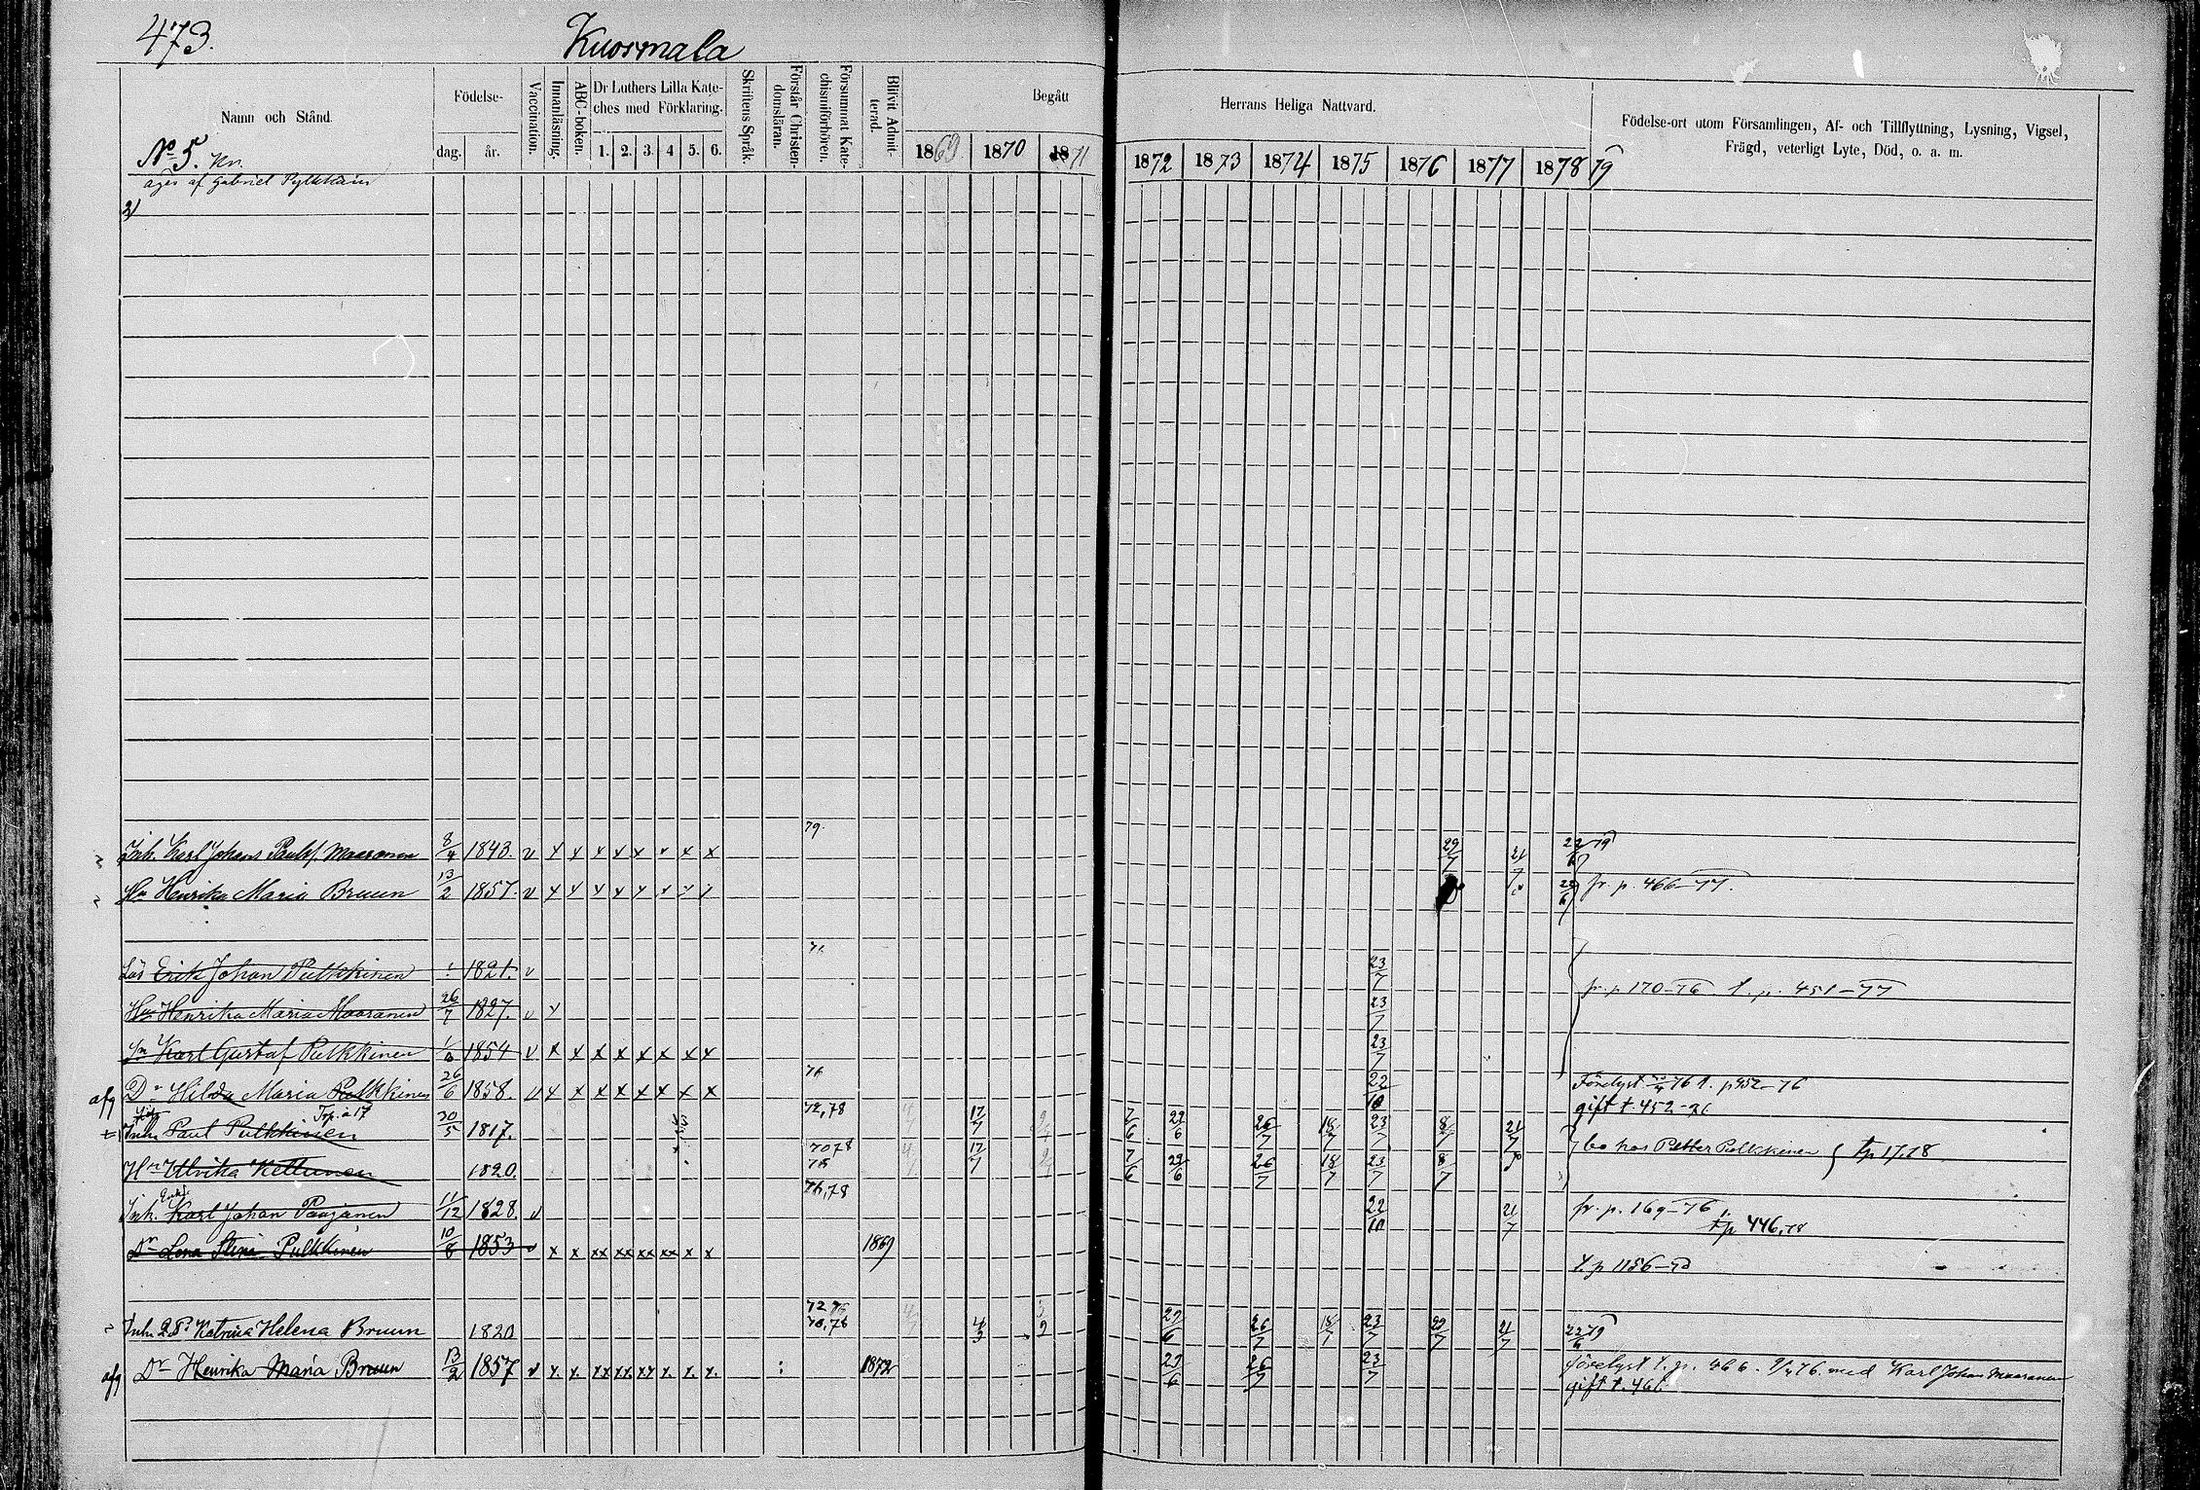 473.
Kuosmala
Namn och Stånd.
Födelse-
dag.
år.
Vaccination.
Innanläsning.
ABC-boken.
Dr Luthers Lilla Kate-
ches med Förklaring.
1. 2. 3. 4 5. 6.
Skriftens Språk.
Förstår Christen-
domsläran.
Försummat Kate-
chismiförhören.
Blifvit Admit-
terad.
Begått
Herrans Heliga Nattvard.
1869 1870 1871
1872 1873 1874 1875 1876 1877 1878 79
Födelse-ort utom Församlingen, Af- och Tillflyttning, Lysning, Vigsel,
Frägd, veterligt Lyte, Död, o. a. m.
No 5. Kn.
äges af Gabriel Pylkkäin
79.
Inh. Karl Johans Maaranen 8/4 1843. v x x x x x x x x 29/7 21/7 22/6 79
Hu Henrika Maria Bruun 13/2 1857. v x x x x x x x x 22/6 fr. p. 466-77.
Lös Erik Johan Pulkkinen 1821. v 23/7
Hu Henrika Maria Maaranen 26/7 1827. v x 23/7 fr. p 170-76 t. p. 451-77
Sn Karl Gustaf Pulkkinen 1854 v x x x x x x x x 23/7
afg Dr Hilda Maria Pulkkinen 26/6 1858. v x x x x x x x x 22/10 Förelyst 76 t. p 452-76
gift t. 452-76
Inh. Paul Pulkkinen Trp. a 17 30/5 1817. 72,78 17/7 7/6 22/6 26/7 18/7 23/7 8/7 21/7
Hu Ulrika Kettunen 1820. 7078 17/7 7/6 22/6 26/7 18/7 23/7 8/7 bo hos Petter Pulkkinen tp 17.78
76,78
Inh. Karl Johan Paajanen 11/12 1828. v 22/10 21/7 fr. p. 169-76
tp 446,78
Dr Lena Stina Pulkkinen 10/8 1853 v x x xx xx xx xx x x 1869 t. p 1156-70
Inh. Katrina Helena Bruun 1820 4/3 29/6 26/7 18/7 23/7 29/7 21/7 22/6 79
afg Dr Henrika Maria Bruun 13/2 1857 v x. x. xx xx. xx x. x. x. 1872 29/6 26/7 23/7 förelyst t. p. 466. 9/4 76. med Karl Johan Maaranen
gift t. 466